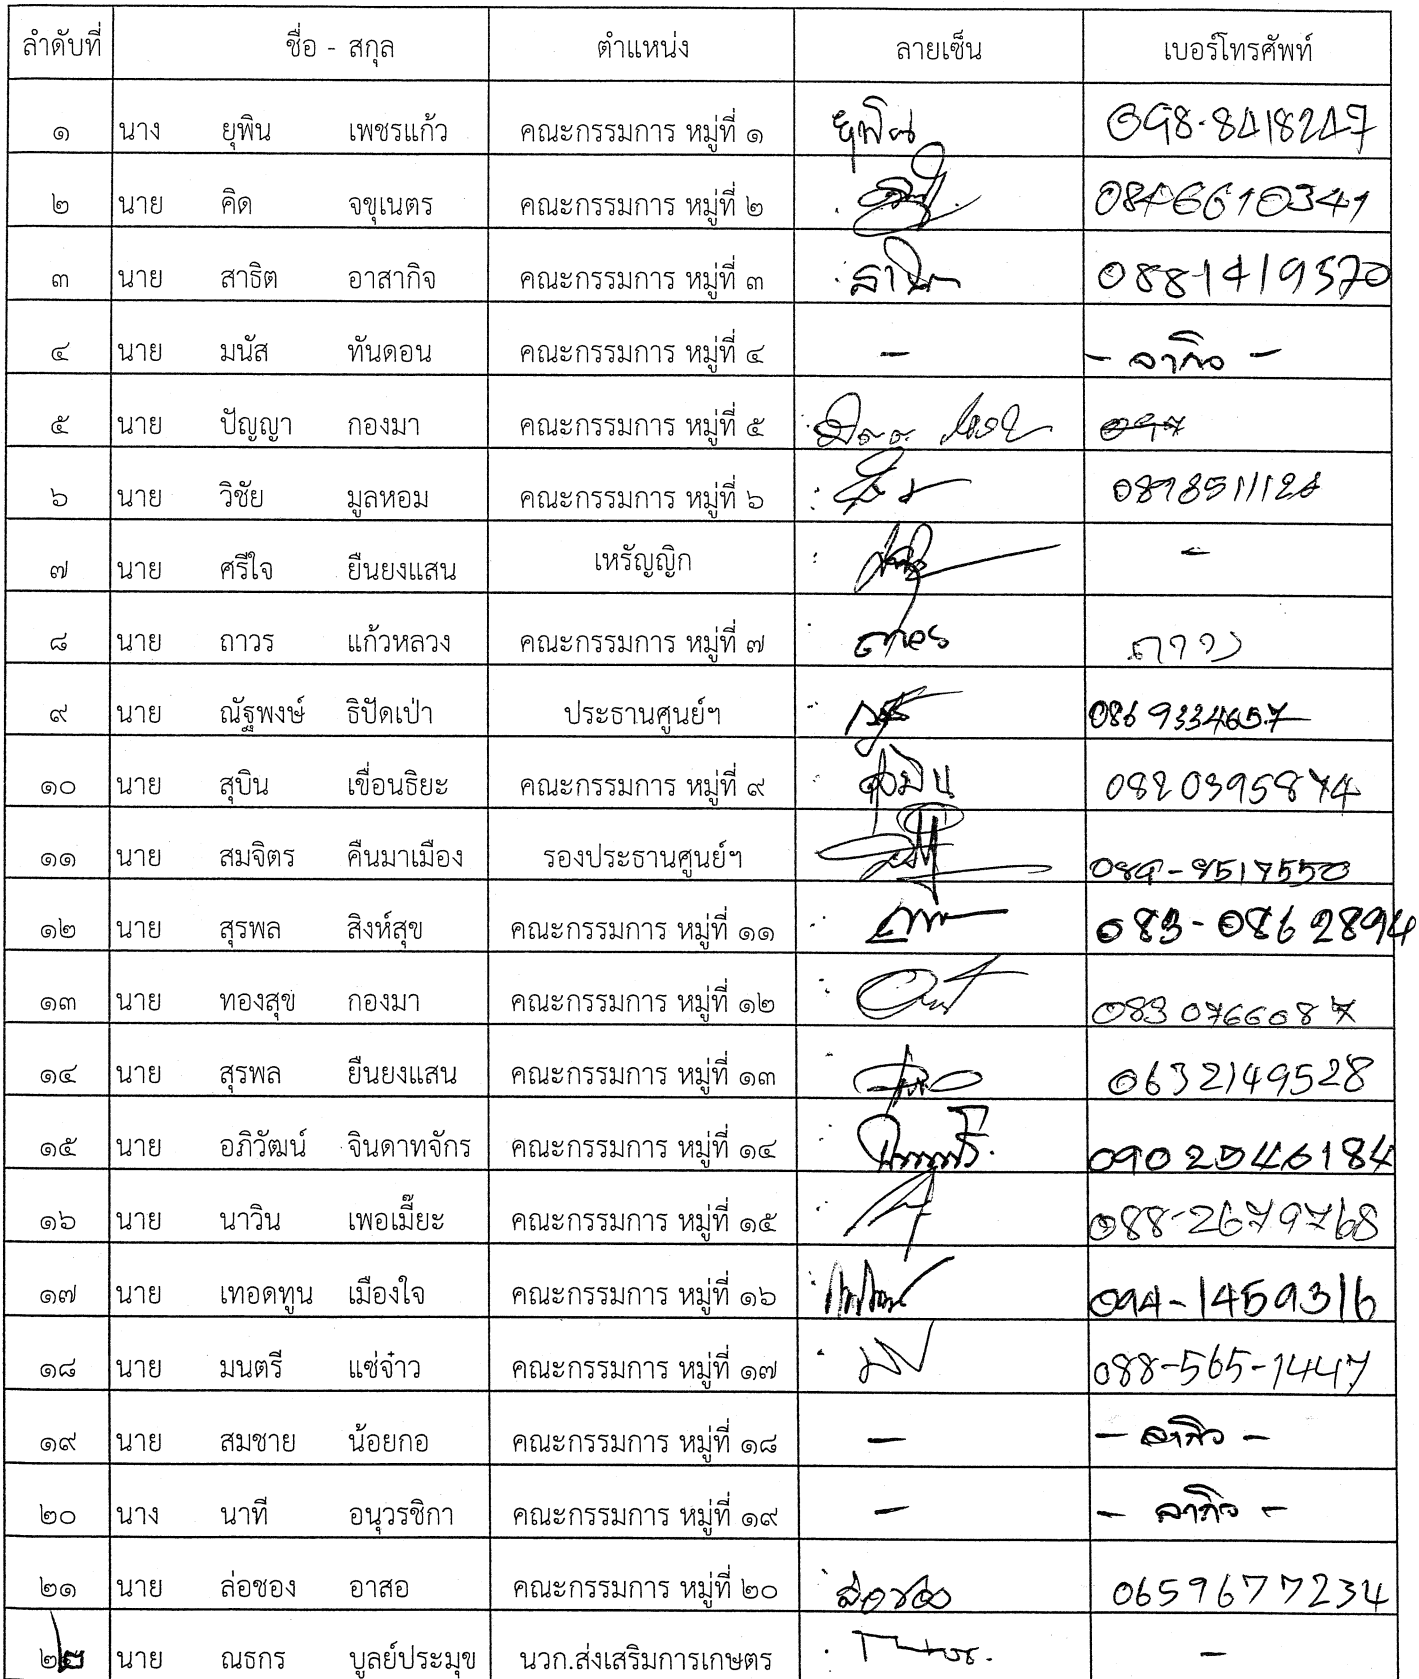 ลำดับที่ ชื่อ - สกุล ตำแหน่ง ลายเซ็น เบอร์โทรศัพท์
๑ นาง ยุพิน เพชรแก้ว คณะกรรมการ หมู่ที่ ๑ ยุพิน 098-8418247
๒ นาย คิด จขุเนตร คณะกรรมการ หมู่ที่ ๒
๓ นาย สาธิต อาสากิจ คณะกรรมการ หมู่ที่ ๓ สาธิต 0881419570
๔ นาย มนัส ทันดอน คณะกรรมการ หมู่ที่ ๔ - - ลากิจ -
๕ นาย ปัญญา กองมา คณะกรรมการ หมู่ที่ ๕
๖ นาย วิชัย มูลหอม คณะกรรมการ หมู่ที่ ๖
๗ นาย ศรีใจ ยืนยงแสน เหรัญญิก -
๘ นาย ถาวร แก้วหลวง คณะกรรมการ หมู่ที่ ๗ ถาวร ถาวร
๙ นาย ณัฐพงษ์ ธิปัดเป่า ประธานศูนย์ฯ 0869334657
๑๐ นาย สุบิน เขื่อนธิยะ คณะกรรมการ หมู่ที่ ๙ สุบิน 0820395874
๑๑ นาย สมจิตร คืนมาเมือง รองประธานศูนย์ฯ 089-9517550
๑๒ นาย สุรพล สิงห์สุข คณะกรรมการ หมู่ที่ ๑๑ 083-0862894
๑๓ นาย ทองสุข กองมา คณะกรรมการ หมู่ที่ ๑๒ 0830766087
๑๔ นาย สุรพล ยืนยงแสน คณะกรรมการ หมู่ที่ ๑๓ 0632149528
๑๕ นาย อภิวัฒน์ จินดาทจักร คณะกรรมการ หมู่ที่ ๑๔ 0902546184
๑๖ นาย นาวิน เพอเมี๊ยะ คณะกรรมการ หมู่ที่ ๑๕ 088-2679768
๑๗ นาย เทอดทูน เมืองใจ คณะกรรมการ หมู่ที่ ๑๖ 094-1459316
๑๘ นาย มนตรี แซ่จ๋าว คณะกรรมการ หมู่ที่ ๑๗ 088-565-1447
๑๙ นาย สมชาย น้อยกอ คณะกรรมการ หมู่ที่ ๑๘ - - ลากิจ -
๒๐ นาง นาที อนุวรชิกา คณะกรรมการ หมู่ที่ ๑๙ - - ลากิจ -
๒๑ นาย ล่อชอง อาสอ คณะกรรมการ หมู่ที่ ๒๐ ล่อชอง 0659677234
๒๒ นาย ณธกร บูลย์ประมุข นวก.ส่งเสริมการเกษตร -